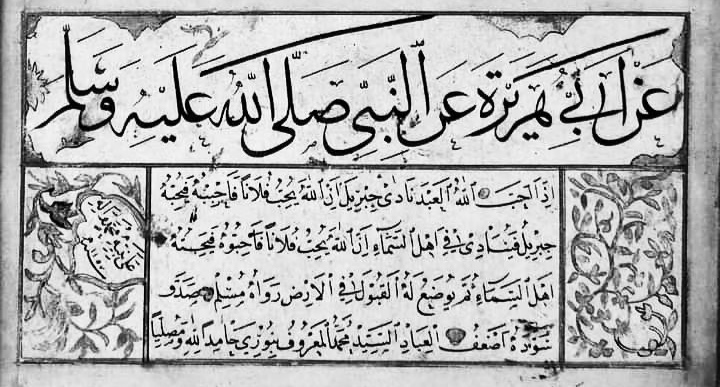 عَنْ أَبِي هُرَيْرَةَ عَنِ النَّبِيِّ صَلَّى اللهُ عَلَيْهِ وَسَلَّمَ
إِذَا أَحَبَّ اللهُ الْعَبْدَ نَادَى جِبْرِيلَ إِنَّ اللهَ يُحِبُّ فُلَانًا فَأَحْبِبْهُ فَيُحِبُّهُ
جِبْرِيلُ فَيُنَادِي فِي أَهْلِ السَّمَاءِ إِنَّ اللهَ يُحِبُّ فُلَانًا فَأَحِبُّوهُ فَيُحِبُّهُ
أَهْلُ السَّمَاءِ ثُمَّ يُوضَعُ لَهُ الْقَبُولُ فِي الْأَرْضِ رَوَاهُ مُسْلِم صَدَقَ
سَوَّدَهُ أَضْعَفُ الْعِبَادِ السَّيِّد مُحَمَّد الْمَعْرُوف بِنُورِي حَامِدًا لِلّٰهِ وَمُصَلِّيًا